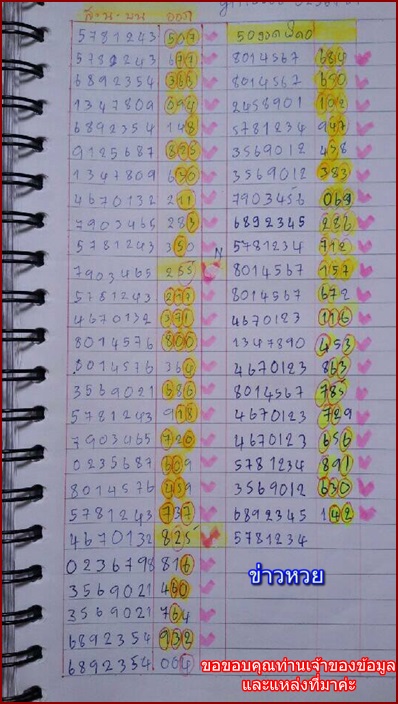 ส่าน-บน ออก
5731243 507
5731243 677
6892354 363
1347809 094
6892354 148
9125687 895
1347809 630
4670132 211
7903465 283
5781243 350
N
7903465 255
5781243 297
4670132 391
8014576 800
8014576 364
3569021 686
5781243 918
7903465 720
0235687 609
8014576 439
5781243 737
4670132 825
0236798 816
3569021 460
3569021 764
6892354 932
6892354 004
8014567 684
8014567 650
2458901 102
5781234 947
3569012 438
3569012 383
7903456 069
6892345 286
5781234 712
8014567 157
8014567 672
4670123 116
1347890 453
4670123 863
8014567 785
4670123 729
4670123 656
5781234 891
3569012 630
6892345 142
5781234
ข่าวหวย
ขอขอบคุณท่านเจ้าของข้อมูล
และแหล่งที่มาค่ะ